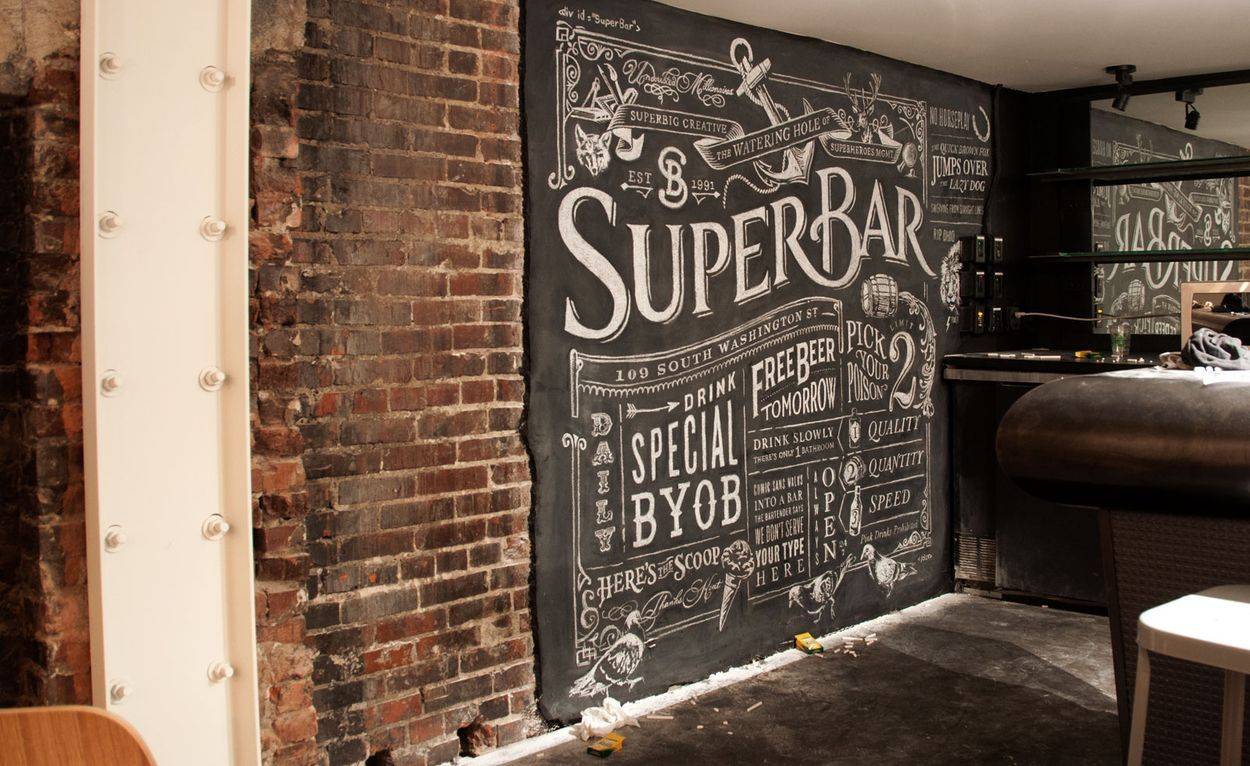 <div id="SuperBar">
SUPERBIG CREATIVE
THE WATERING HOLE OF
SUPERHEROES MGMT.
EST SB 1991
SUPERBAR
109 SOUTH WASHINGTON ST
DAILY
DRINK
SPECIAL
BYOB
FREE BEER
TOMORROW
DRINK SLOWLY
THERE'S ONLY 1 BATHROOM
COMIC SANS WALKS
INTO A BAR
THE BARTENDER SAYS
WE DON'T SERVE
YOUR TYPE
HERE
ALWAYS
OPEN
LIMIT
PICK
YOUR
POISON
2
1 QUALITY
2 QUANTITY
SPEED
Pink Drinks Prohibited
HERE'S THE SCOOP
Thanks Kurt
NO HORSEPLAY
THE QUICK BROWN FOX
JUMPS OVER
THE LAZY DOG
RIP OHNO
SUPERBAR